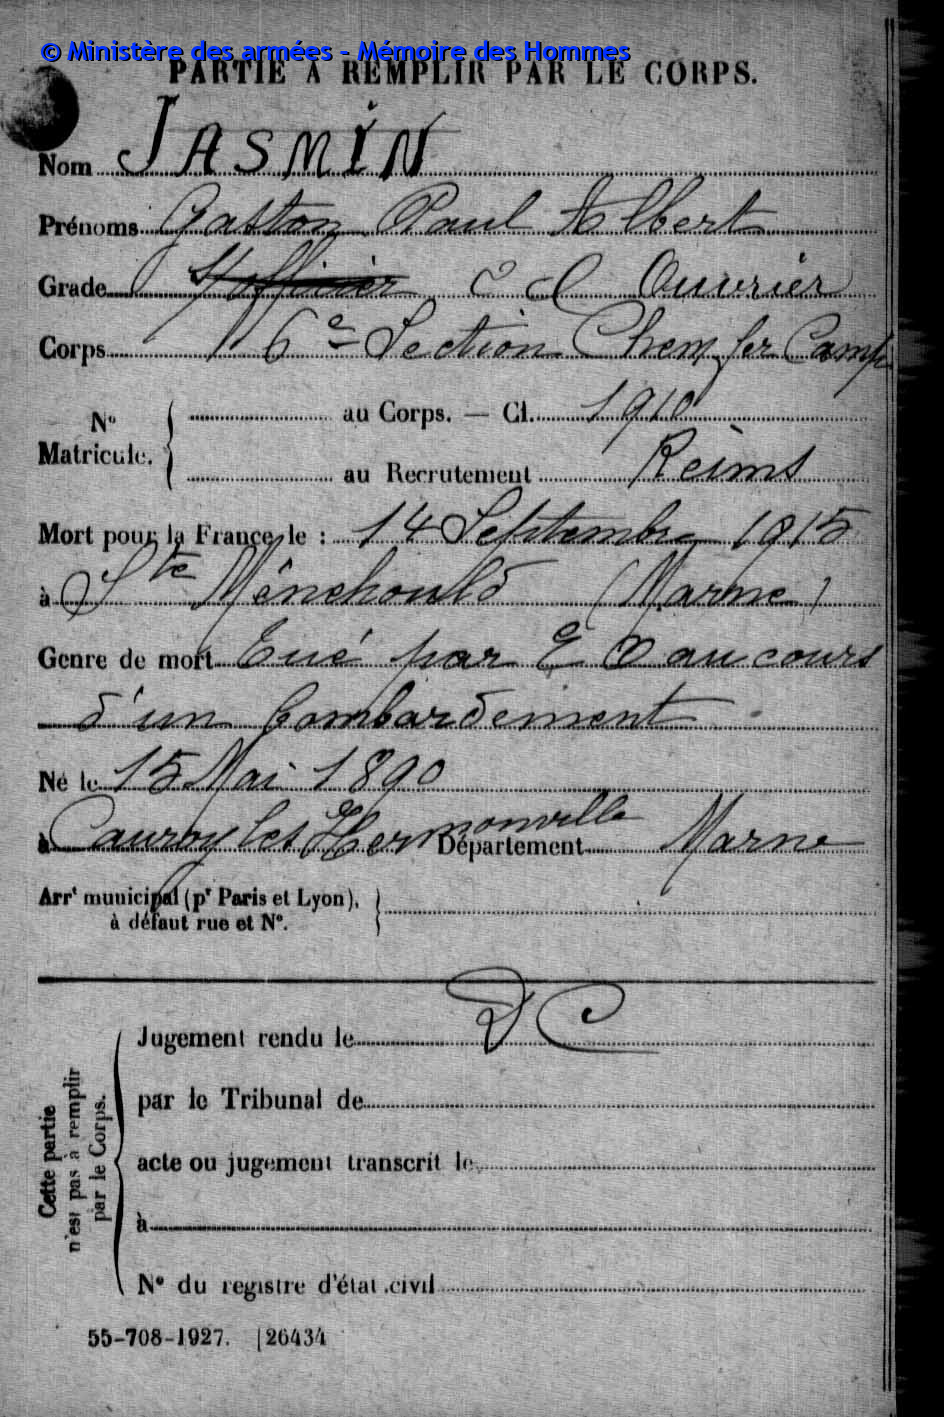 © Ministère des armées - Mémoire des Hommes
PARTIE À REMPLIR PAR LE CORPS.
Nom JASMIN
Prénoms Gaston Paul Albert
Grade S/officier Ouvrier
Corps 6e Section Chem fer Camp
No Matricule. { au Corps. — Cl. 1910
au Recrutement Reims
Mort pour la France le : 14 Septembre 1915
à Ste Ménehould (Marne)
Genre de mort Tué par E O au cours
d'un bombardement
Né le 15 Mai 1890
à Cauroy les Hermonville Département Marne
Arrt municipal (pr Paris et Lyon),
à défaut rue et No.
D C
Cette partie n'est pas à remplir par le Corps.
Jugement rendu le
par le Tribunal de
acte ou jugement transcrit le
à
No du registre d'état civil
55-708-1927. [26434